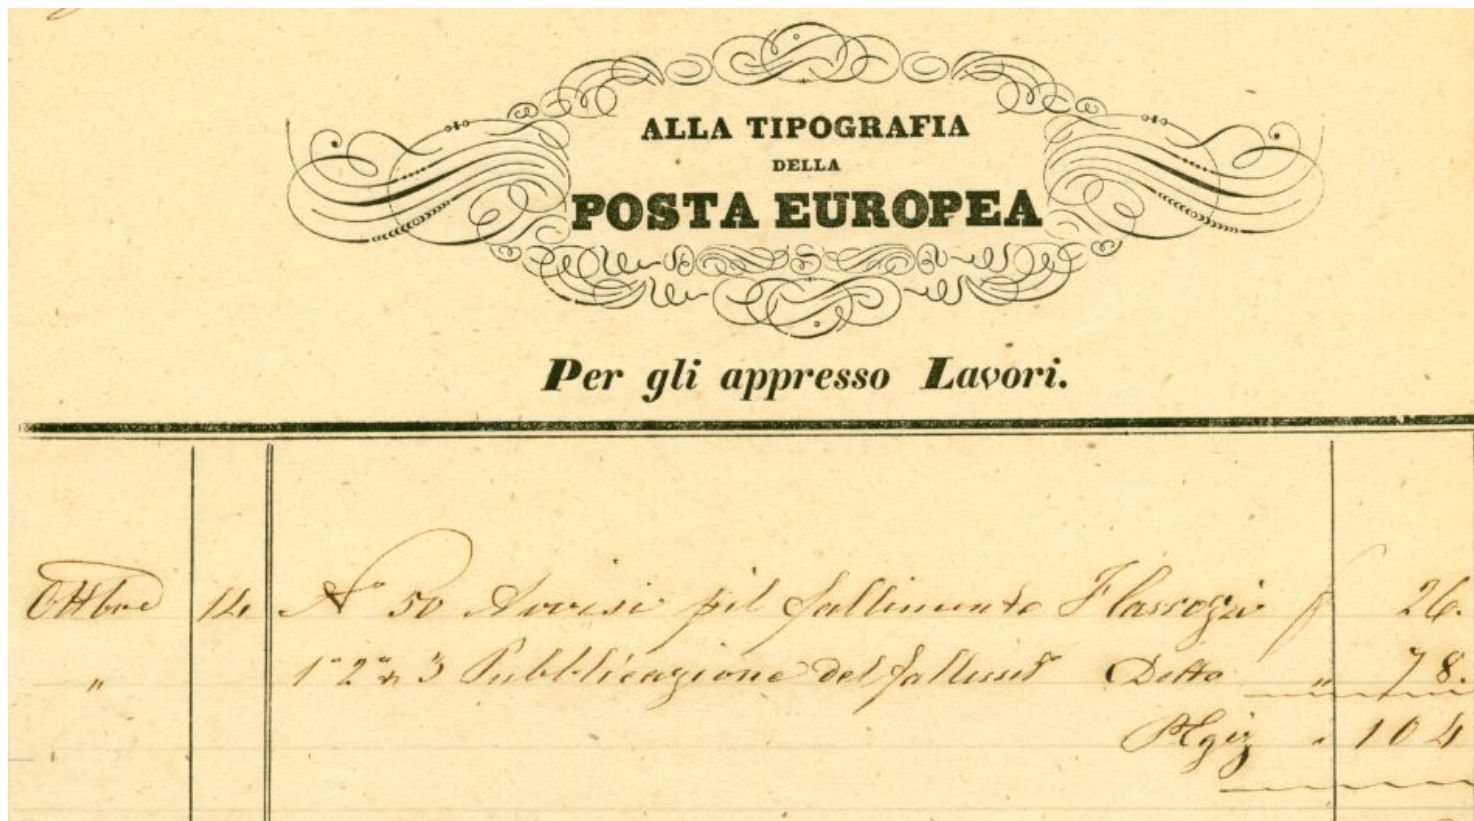 ALLA TIPOGRAFIA
DELLA
POSTA EUROPEA
Per gli appresso Lavori.
Ottbre 14 N° 50 Avvisi pil fallimento 26.
" 1ª 2ª e 3 Pubblicazione del Detto " 78.
" 104